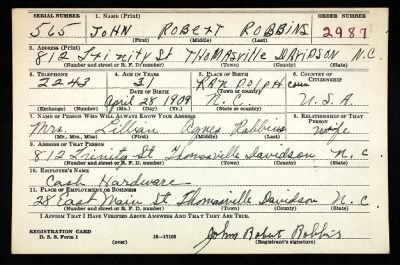 SERIAL NUMBER 1. NAME (Print) ORDER NUMBER
565 JOHN ROBERT ROBBINS 2987
(First) (Middle) (Last)
2. ADDRESS (Print)
812 Trinity St THOMASVILLE DAVIDSON N.C.
(Number and street or R. F. D. number) (Town) (County) (State)
3. TELEPHONE 4. AGE IN YEARS 5. PLACE OF BIRTH 6. COUNTRY OF CITIZENSHIP
2243 31 RANDOLPH
DATE OF BIRTH (Town or county)
April 28 1909 N.C. U.S.A.
(Exchange) (Number) (Mo.) (Day) (Yr.) (State or country)
7. NAME OF PERSON WHO WILL ALWAYS KNOW YOUR ADDRESS 8. RELATIONSHIP OF THAT PERSON
Mrs. Lillian Agnes Robbins wife
(Mr., Mrs., Miss) (First) (Middle) (Last)
9. ADDRESS OF THAT PERSON
812 Trinity St Thomasville Davidson N. C.
(Number and street or R. F. D. number) (Town) (County) (State)
10. EMPLOYER'S NAME
Cash Hardware
11. PLACE OF EMPLOYMENT OR BUSINESS
28 East Main St Thomasville Davidson N. C.
(Number and street or R. F. D. number) (Town) (County) (State)
I AFFIRM THAT I HAVE VERIFIED ABOVE ANSWERS AND THAT THEY ARE TRUE.
REGISTRATION CARD
D. S. S. Form 1 (over) 16—17105
John Robert Robbins
(Registrant's signature)